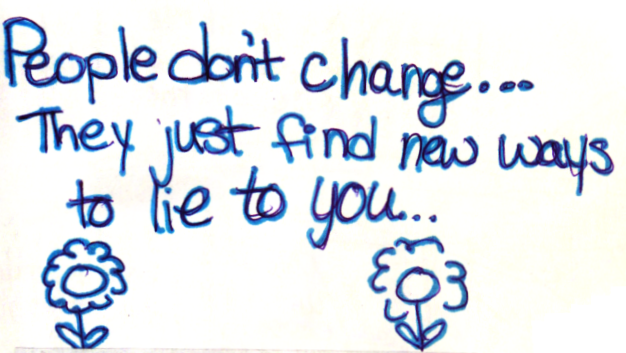 People don't change...
They just find new ways
to lie to you...